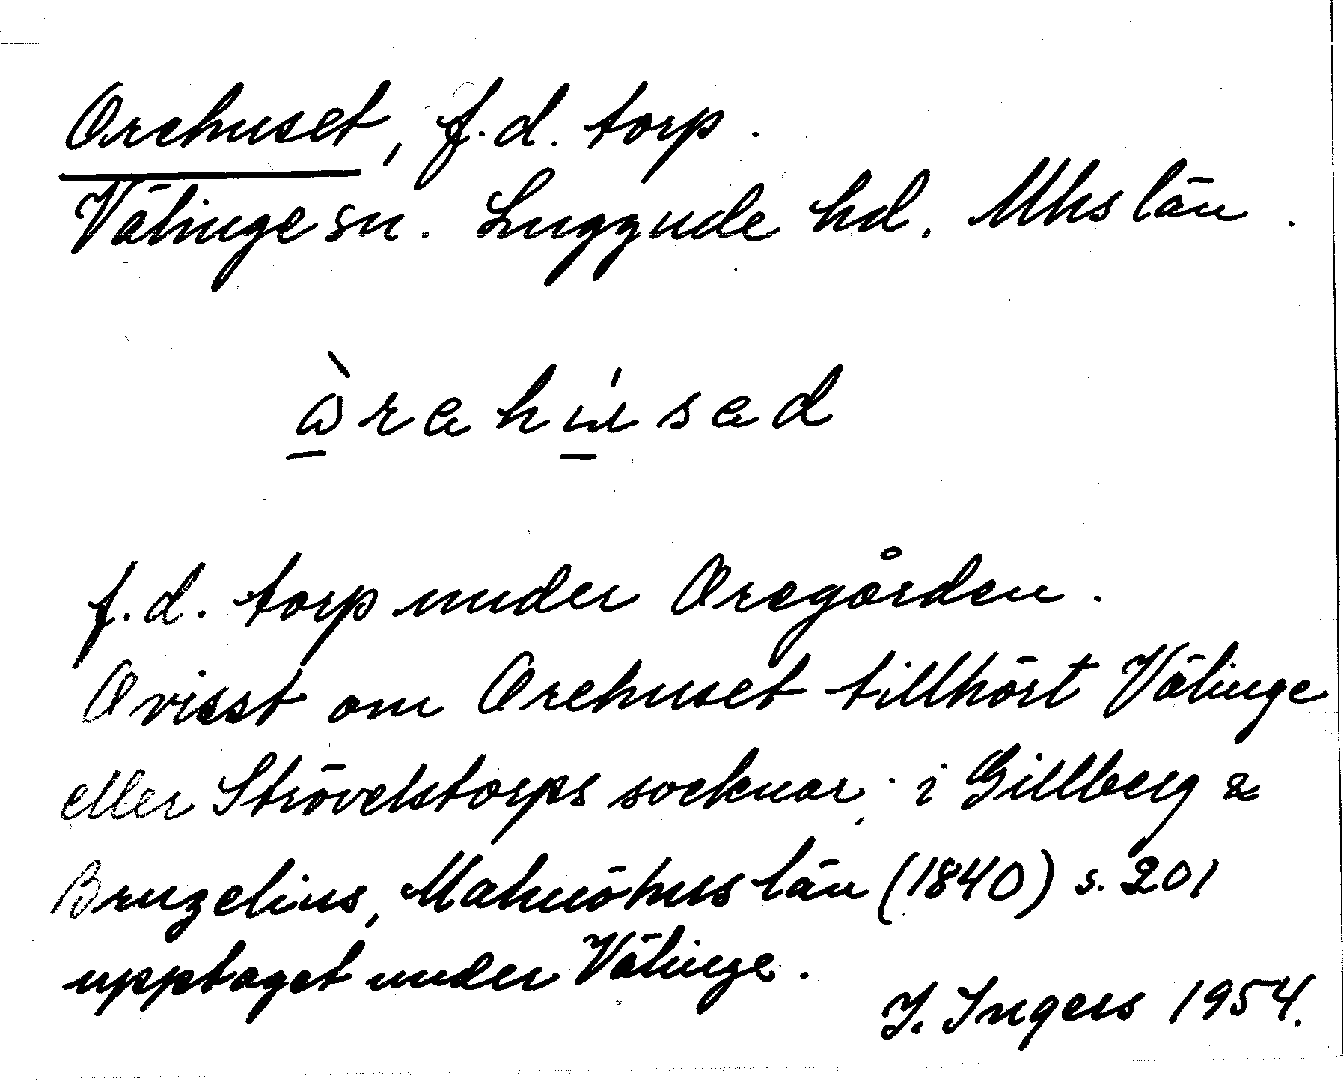 Orehuset, f.d. torp.
Välinge sn. Luggude hd. Mhs län.
ὼrahúsad
f.d. torp under Oregården.
Ovisst om Orehuset tillhört Välinge
eller Strövelstorps socknar; i Gillberg &
Bruzelius, Malmöhus län (1840) s. 201
upptaget under Välinge.
I. Ingers 1954.